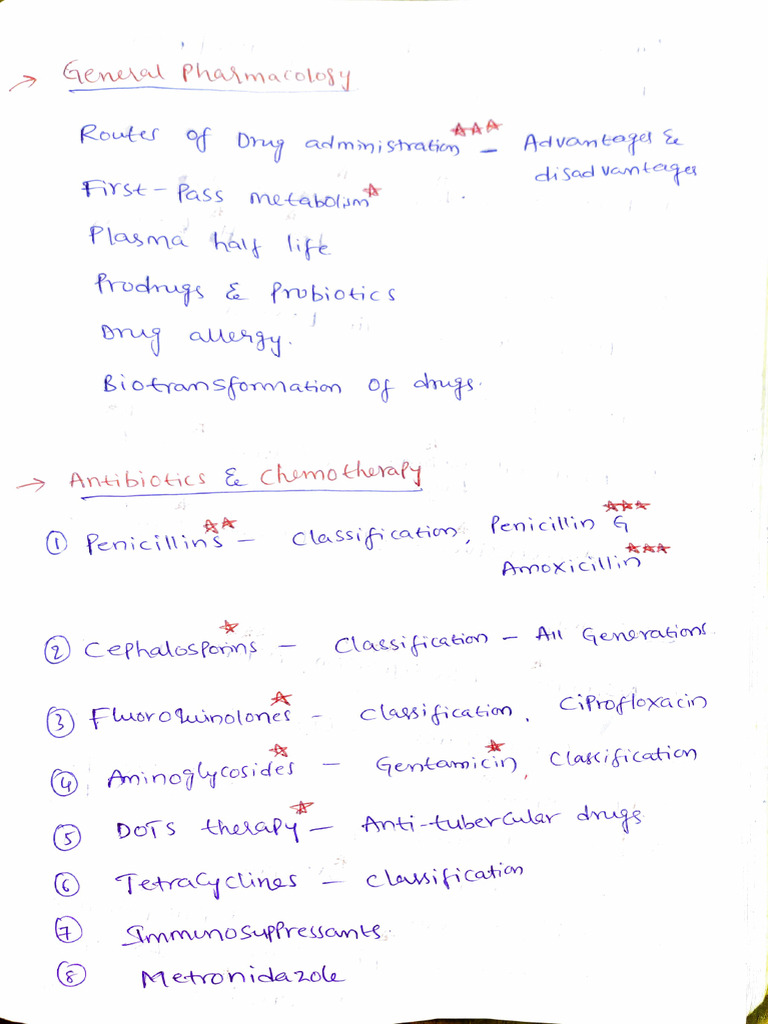 → General Pharmacology
Routes of Drug administration ☆☆☆ – Advantages &
disadvantages
First-Pass metabolism ☆
Plasma half life
Prodrugs & Probiotics
Drug allergy.
Biotransformation of drugs.
→ Antibiotics & Chemotherapy
① Penicillins ☆☆ – Classification, Penicillin G ☆☆☆
Amoxicillin ☆☆☆
② Cephalosporins ☆ – Classification – All Generations
③ Fluoroquinolones ☆ – Classification, Ciprofloxacin
④ Aminoglycosides ☆ – Gentamicin ☆, Classification
⑤ DOTS therapy ☆ – Anti-tubercular drugs
⑥ Tetracyclines – Classification
⑦ Immunosuppressants.
⑧ Metronidazole